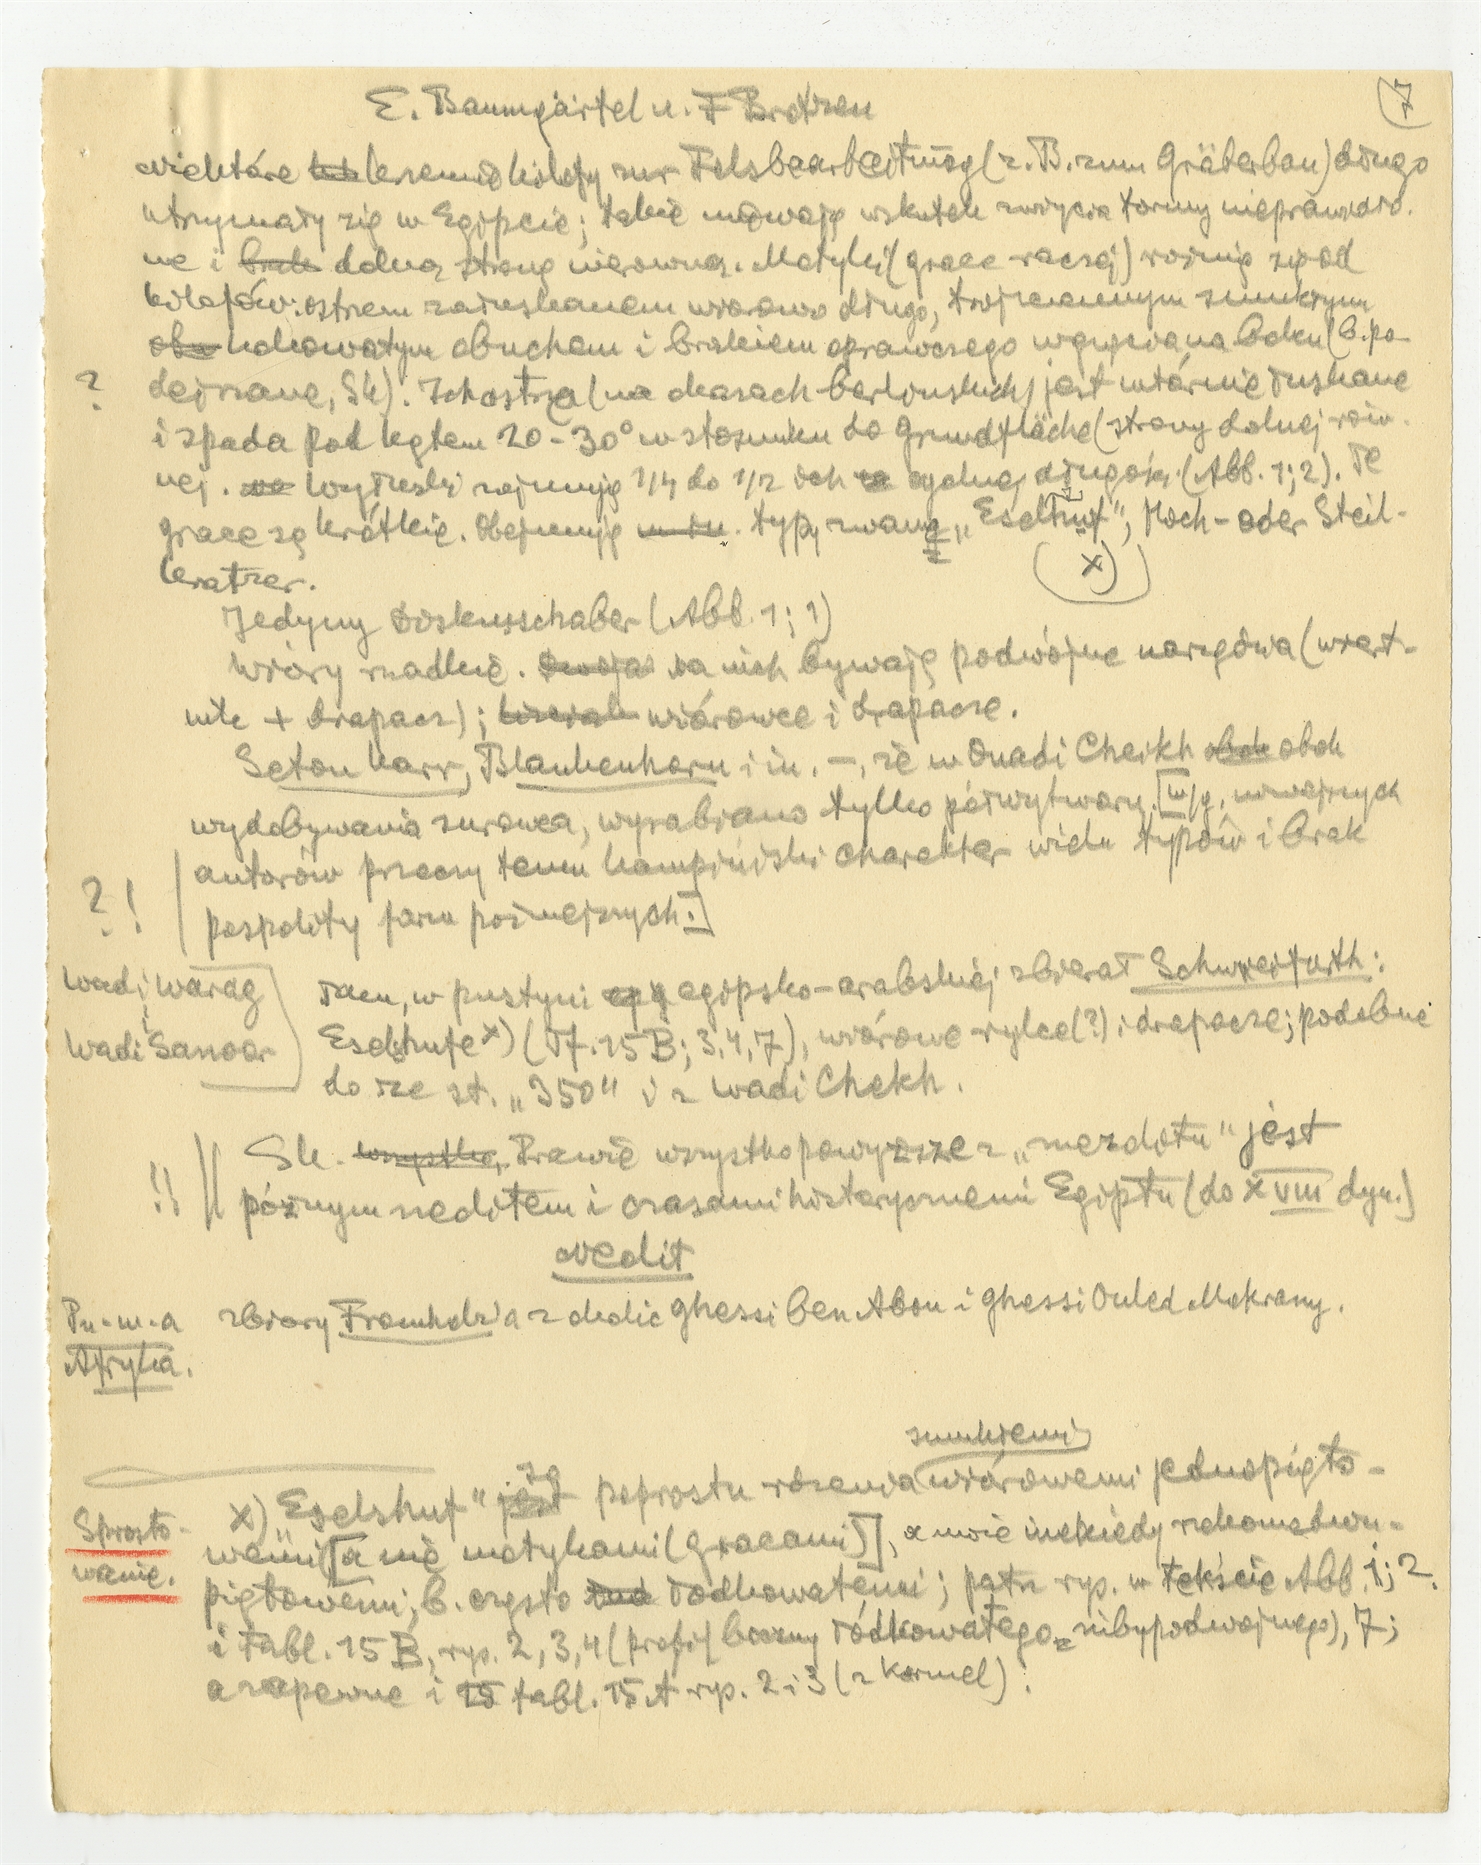 7
E. Baumgärtel u. F Brotzen
niektóre krzemie kilofy zur Felsbearbeitung (z. B. zum Gräberbau) długo
utrzymały się w Egipcie; takie miewają wskutek zużycia formy nieprawidło-
we i dolną stronę nierówną. Motyki (grace raczej) różnią się od
kilofów: ostrzem załuskanem wiórowo długo,
obuchem i brakiem oprawczego wgięcia na boku (b. po-
?
dejrzane, Sk). Ich ostrza (na okazach berlińskich) jest wtórnie łuskane
i spada pod kątem 20-30° w stosunku do Grundfläche (strony dolnej rów-
nej. Wyłuski zajmują 1/4 do 1/2 ich ogólnej długości (Abb. 1; 2). Te
grace są krótkie. Obejmują typy zwane „Eselhuf", Hoch- oder Steil-
x)
kratzer.
Jedyny Diskusschaber (Abb. 1; 1)
Wióry rzadkie. Na nich bywają podwójne narzędzia (wiert-
nik + drapacz); wiórowce i drapacze.
Seton Karr, Blankenhorn i in. –, że w Ouadi Cheikh obok
wydobywania surowca, wyrabiano tylko półwytwory. [W/g. niniejszych
?!
autorów przeczy temu kampiński charakter wielu typów i brak
pospolity form późniejszych.]
Wadi Warag
i
Wadi Sanoor
Tam, w pustyni egipsko-arabskiej zbierał Schweifurth:
Eselshufe x) (T. 15 B; 3, 4, 7), wiórowe rylce (?) i drapacze; podobne
do tze st. „350" i z Wadi Chekh.
!! Sk. Prawie wszystko powyższe z „mezolitu" jest
późnym neolitem i czasami historycznemi Egiptu (do XVIII dyn.)
Neolit
Pn-w-a
Afryka.
zbiory Fromholz'a z okolic Ghessi ben Abou i Ghessi Ouled Mokrany.
Sprosto-
wanie.
smukłemi
x) „Eselshuf" są poprostu rdzenia wiórowemi jednopięto-
wemi [a nie motykami (gracami)],
piętowemi; b. często łódkowatemi; patrz ryc. w tekście Abb. 1; 2.
i tabl. 15 B, ryc. 2, 3, 4 (profil boczny łódkowatego = nibypodwójnego), 7;
a zapewne i tabl. 15 A ryc. 2 i 3 (z Kormel).